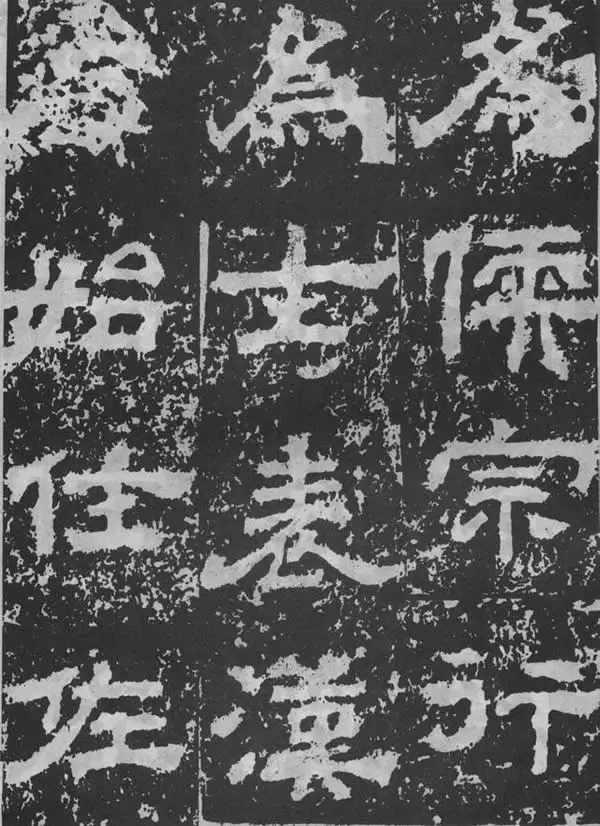 為偄宗行
為士表漢
始仕佐